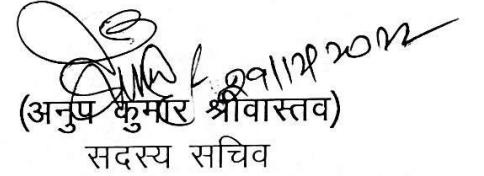 29/12/2022
(अनुप कुमार श्रीवास्तव)
सदस्य सचिव